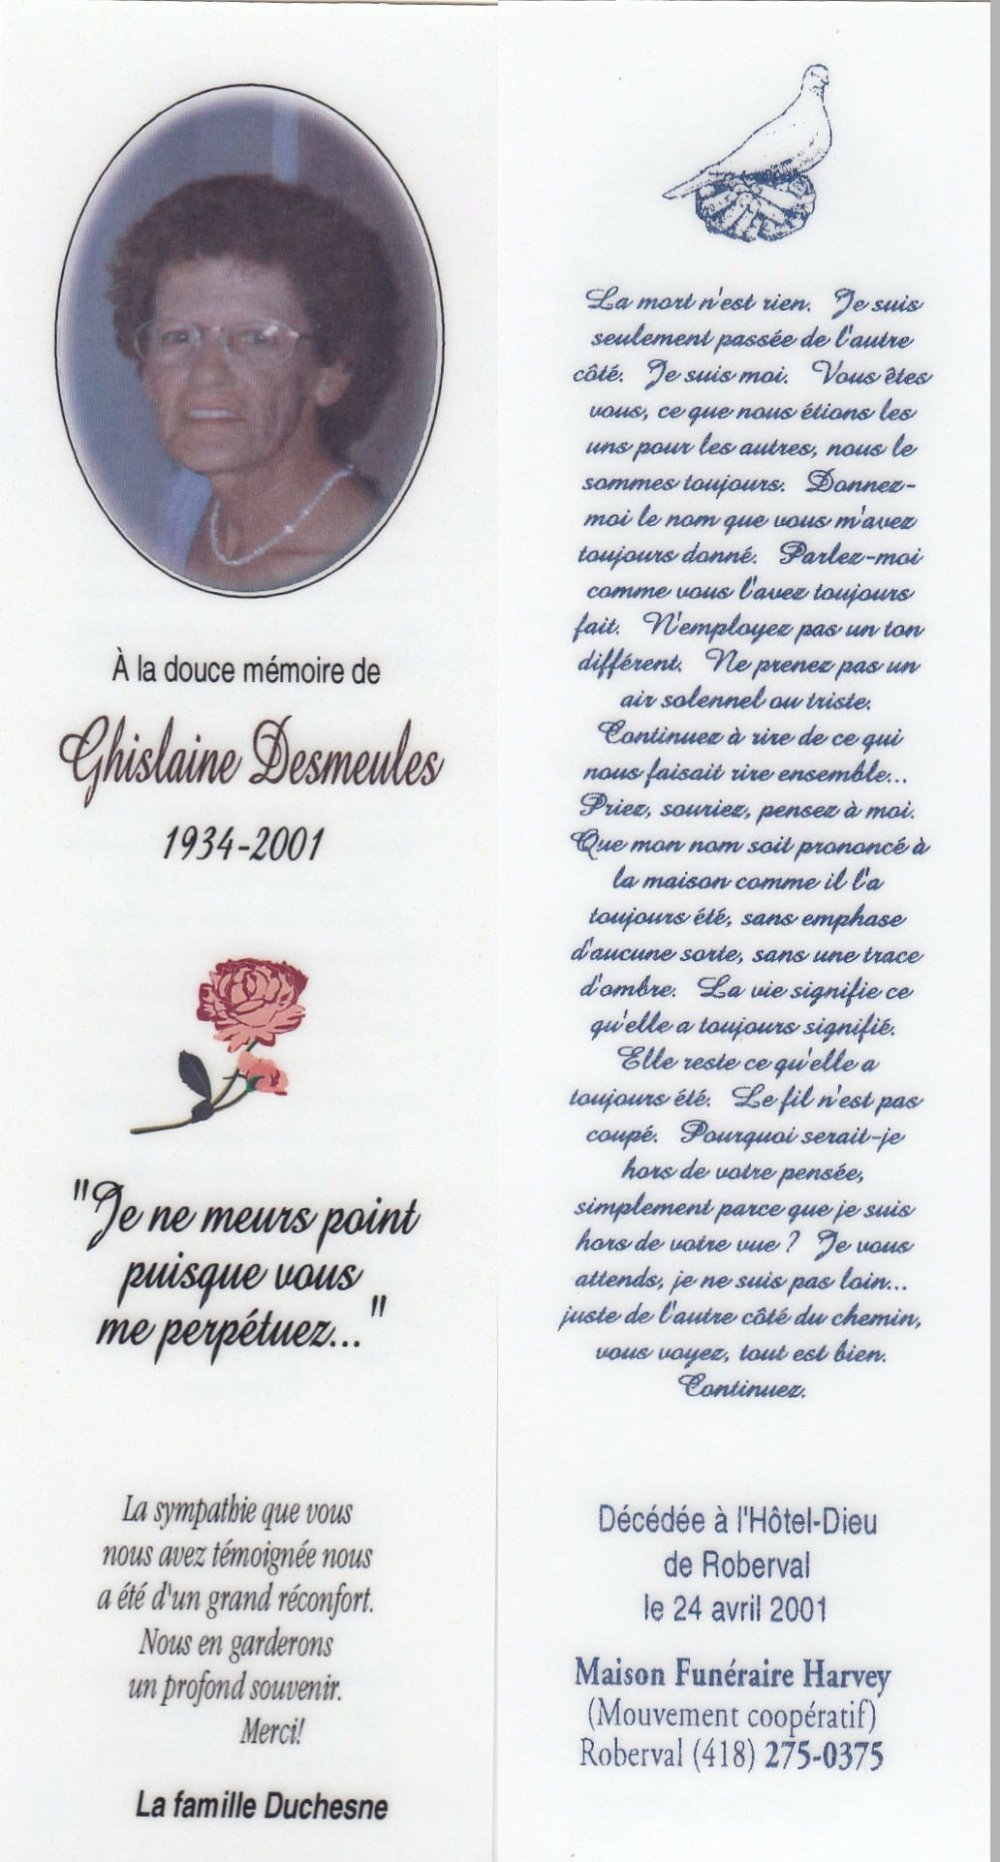 À la douce mémoire de
Ghislaine Desmeules
1934-2001
"Je ne meurs point
puisque vous
me perpétuez..."
La sympathie que vous
nous avez témoignée nous
a été d'un grand réconfort.
Nous en garderons
un profond souvenir.
Merci!
La famille Duchesne
La mort n'est rien. Je suis
seulement passée de l'autre
côté. Je suis moi. Vous êtes
vous, ce que nous étions les
uns pour les autres, nous le
sommes toujours. Donnez-
moi le nom que vous m'avez
toujours donné. Parlez-moi
comme vous l'avez toujours
fait. N'employez pas un ton
différent. Ne prenez pas un
air solennel ou triste.
Continuez à rire de ce qui
nous faisait rire ensemble...
Priez, souriez, pensez à moi.
Que mon nom soit prononcé à
la maison comme il l'a
toujours été, sans emphase
d'aucune sorte, sans une trace
d'ombre. La vie signifie ce
qu'elle a toujours signifié.
Elle reste ce qu'elle a
toujours été. Le fil n'est pas
coupé. Pourquoi serait-je
hors de votre pensée,
simplement parce que je suis
hors de votre vue ? Je vous
attends, je ne suis pas loin...
juste de l'autre côté du chemin,
vous voyez, tout est bien.
Continuez.
Décédée à l'Hôtel-Dieu
de Roberval
le 24 avril 2001
Maison Funéraire Harvey
(Mouvement coopératif)
Roberval (418) 275-0375